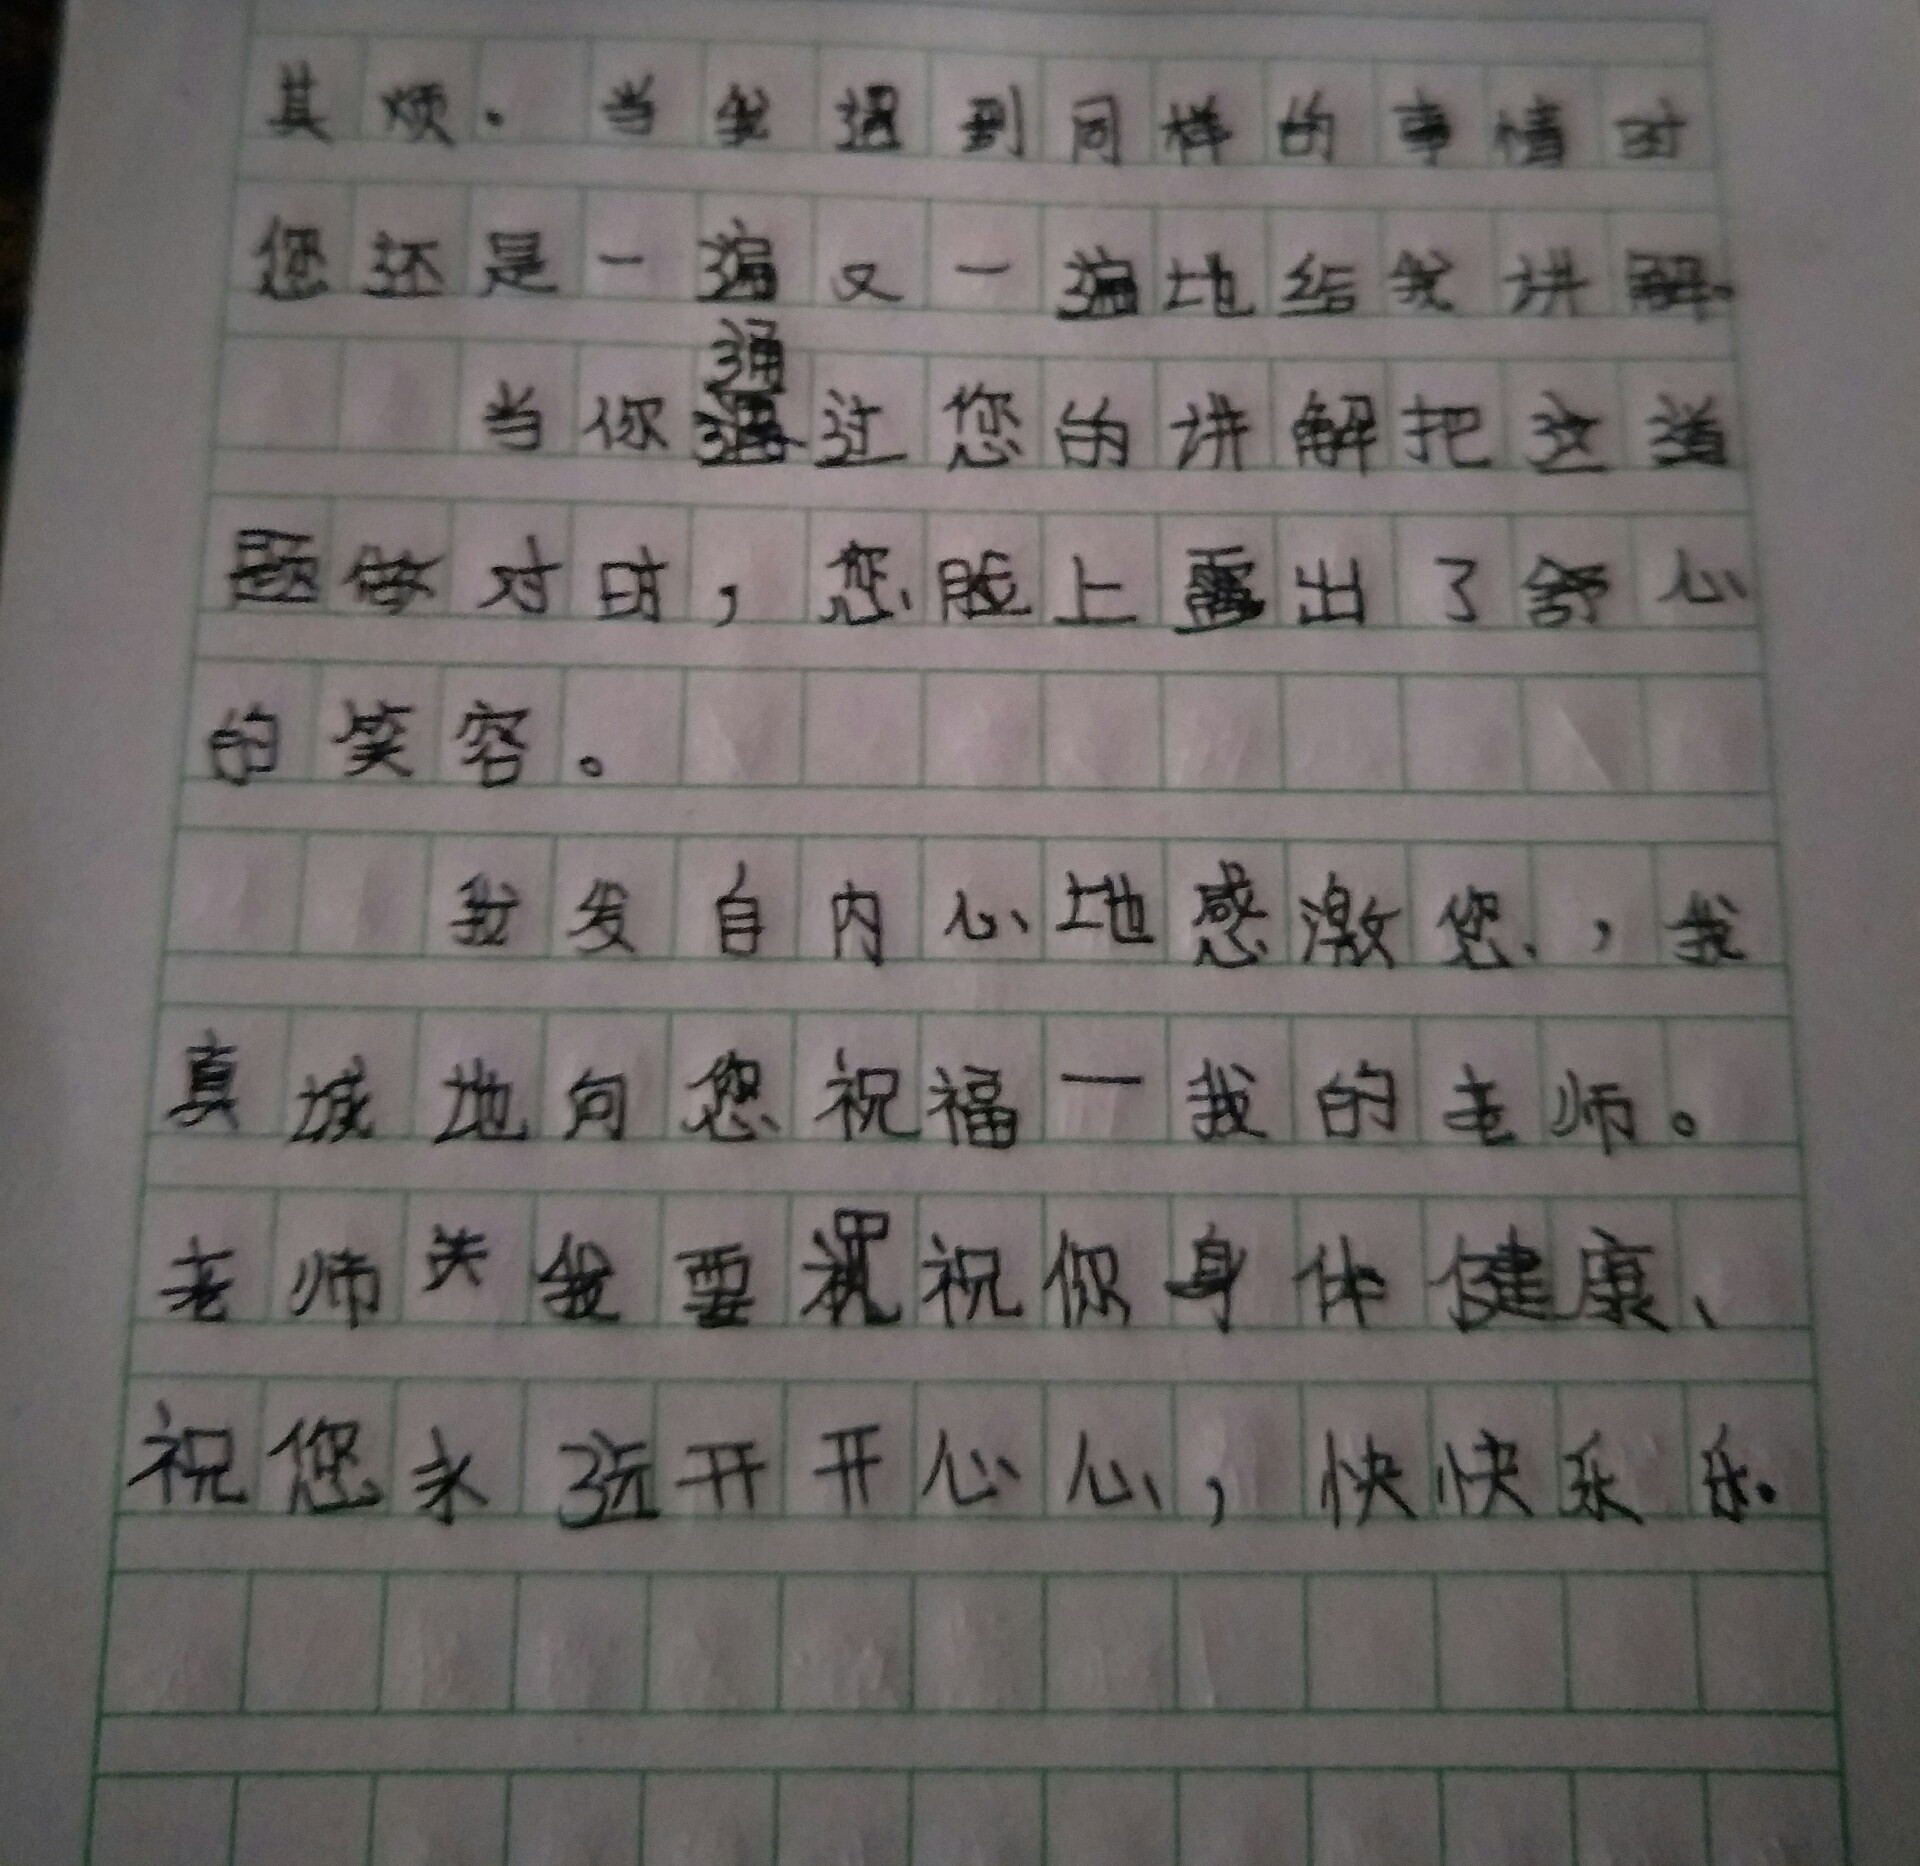 其烦。当我遇到同样的事情时
您还是一遍又一遍地给我讲解。
当你通过您的讲解把这道
题做对时，您脸上露出了舒心
的笑容。
我发自内心地感激您，我
真城地向您祝福一我的老师。
老师我要祝你身体健康、
祝您永远开开心心，快快乐乐。